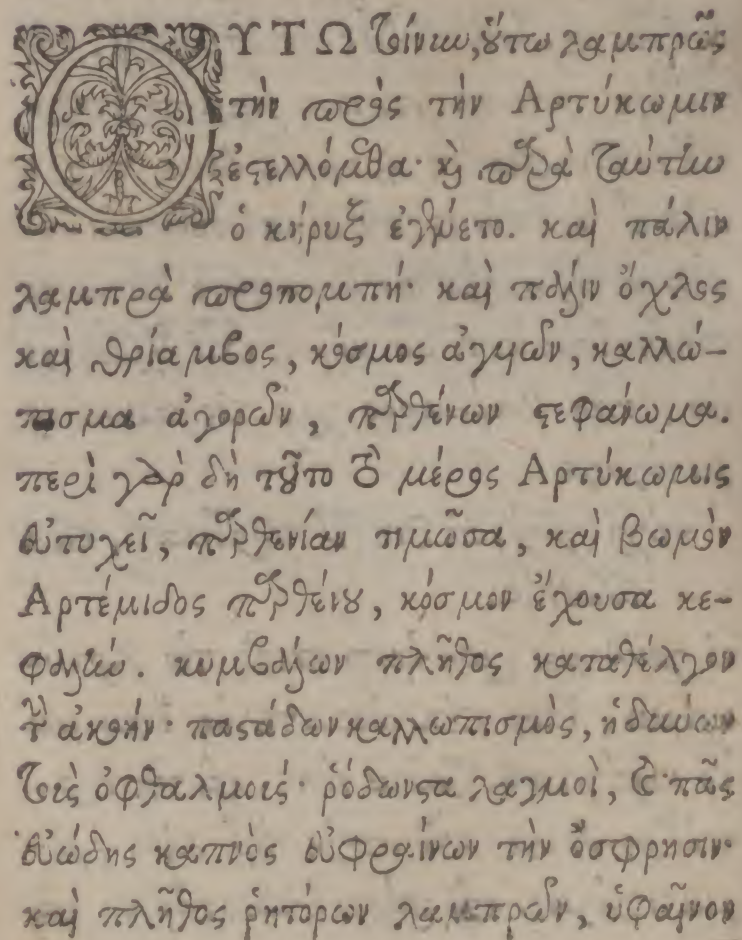 ΟΥΤΩ τοίνυν, οὕτω λαμπρῶς
τὴν πρὸς τὴν Αρτύκωμιν
ἐξεστελλόμεθα· καὶ παρὰ ταύτην
ὁ κήρυξ ἐγένετο. καὶ πάλιν
λαμπρὰ προπομπή· καὶ πάλιν ὄχλος
καὶ θρίαμβος, κόσμος ἀγυιῶν, καλλώ-
πισμα ἀγορῶν, παρθένων στεφάνωμα.
περὶ γὰρ δὴ τοῦτο τὸ μέρος Αρτύκωμις
εὐτυχεῖ, παρθενίαν τιμῶσα, καὶ βωμὸν
Αρτέμιδος παρθένου, κόσμον ἔχουσα κε-
φαλήν. κυμβάλων πλῆθος καταθέλγον
τὴν ἀκοήν· παστάδων καλλωπισμὸς, ἡδύνων
τοῖς ὀφθαλμοῖς· ῥόδων σταλαγμοὶ, καὶ πᾶς
εὐώδης καπνὸς εὐφραίνων τὴν ὄσφρησιν·
καὶ πλῆθος ῥητόρων λαμπρῶν, ὑφαῖνον